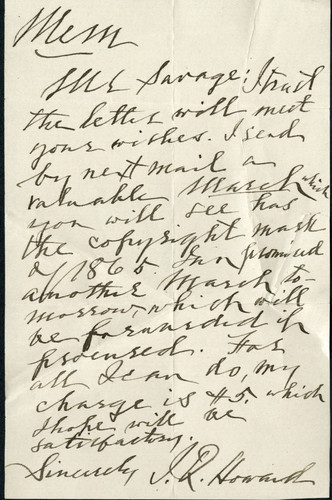 Mem
Mr Savage; I trust
the letter will meet
your wishes. I send
by next mail a
valuable March which
you will see has
the copyright mark
of 1865. I'm promised
another March to-
morrow, which will
be forwarded if
procured. For
all I can do, my
charge is $5. which
I hope will be
satisfactory.
Sincerely J. R. Howard